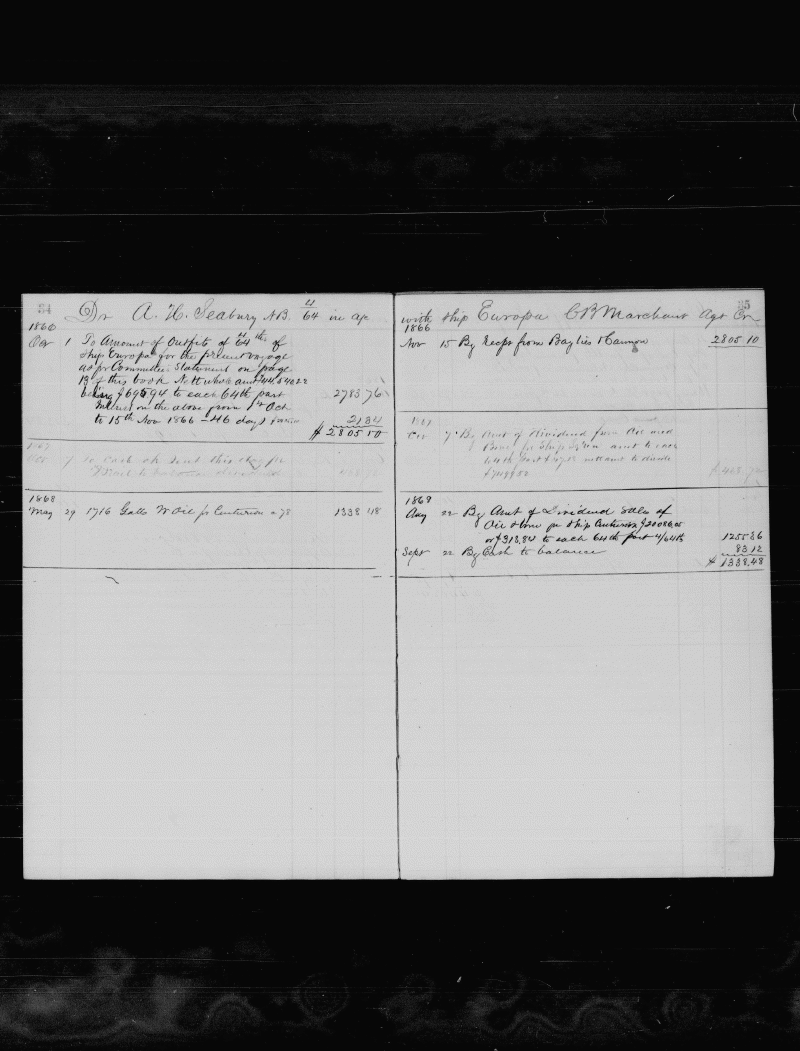 34
Dr A. H. Seabury N.B. 4/64 in a/c
1866
Oct 1 To Amount of Outfits of 64ths of
Ship Europa for the present voyage
as pr Committees Statement on page
13 of this book Nett whole amt
being $695.94 to each 64th part 2783 76
Interest on the above from 1st Oct
to 15th Nov 1866 - 46 days 21 34
$ 2805 10
1867
Oct 7 To Cash
1868
May 29 1716 Galls W Oil pr Centurion a 78 1338 48
35
with Ship Europa C B Marchant Agt Cr
1866
Nov 15 By Recpt from Baylies & Cannon 2805 10
1867
Oct 7 By Amt of dividend from
64th part
1868
Aug 22 By Amt of Dividend Sales of
Oil & bone pr Ship Centurion $20086.05
or $313.84 to each 64th part 4/64th 1255 36
Sept 22 By Cash to balance 83 12
$ 1338.48